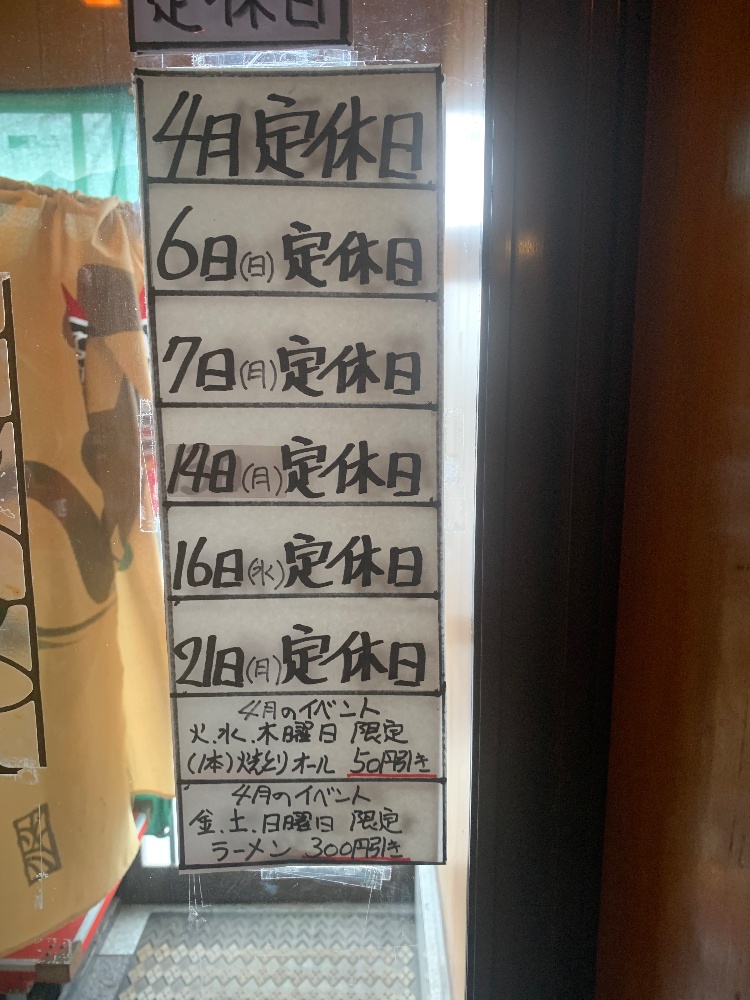 定休日
4月定休日
6日(日)定休日
7日(月)定休日
14日(月)定休日
16日(水)定休日
21日(月)定休日
4月のイベント
火.水.木曜日 限定
(1本)焼とりオール 50円引き
4月のイベント
金.土.日曜日 限定
ラーメン 300円引き